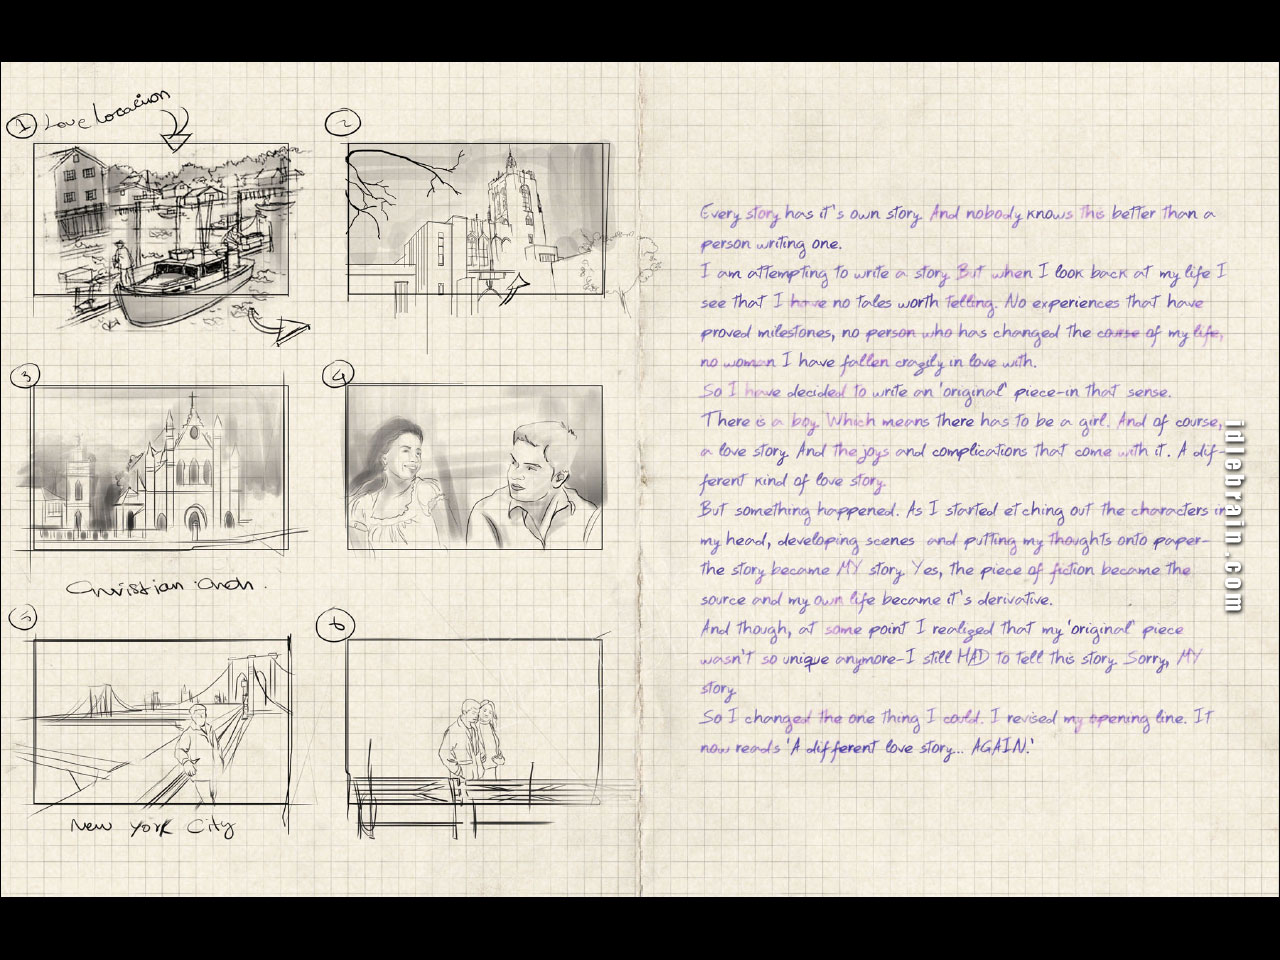 1 Love location
2
3
4
Christian
5
6
New York City
Every story has it's own story. And nobody knows this better than a
person writing one.
I am attempting to write a story. But when I look back at my life I
see that I have no tales worth telling. No experiences that have
proved milestones, no person who has changed the course of my life,
no woman I have fallen crazily in love with.
So I have decided to write an 'original' piece-in that sense.
There is a boy. Which means there has to be a girl. And of course,
a love story. And the joys and complications that come with it. A dif-
ferent kind of love story.
But something happened. As I started etching out the characters in
my head, developing scenes and putting my thoughts onto paper-
the story became MY story. Yes, the piece of fiction became the
source and my own life became it's derivative.
And though, at some point I realized that my 'original' piece
wasn't so unique anymore-I still HAD to tell this story. Sorry, MY
story.
So I changed the one thing I could. I revised my opening line. It
now reads 'A different love story... AGAIN.'
idlebrain.com